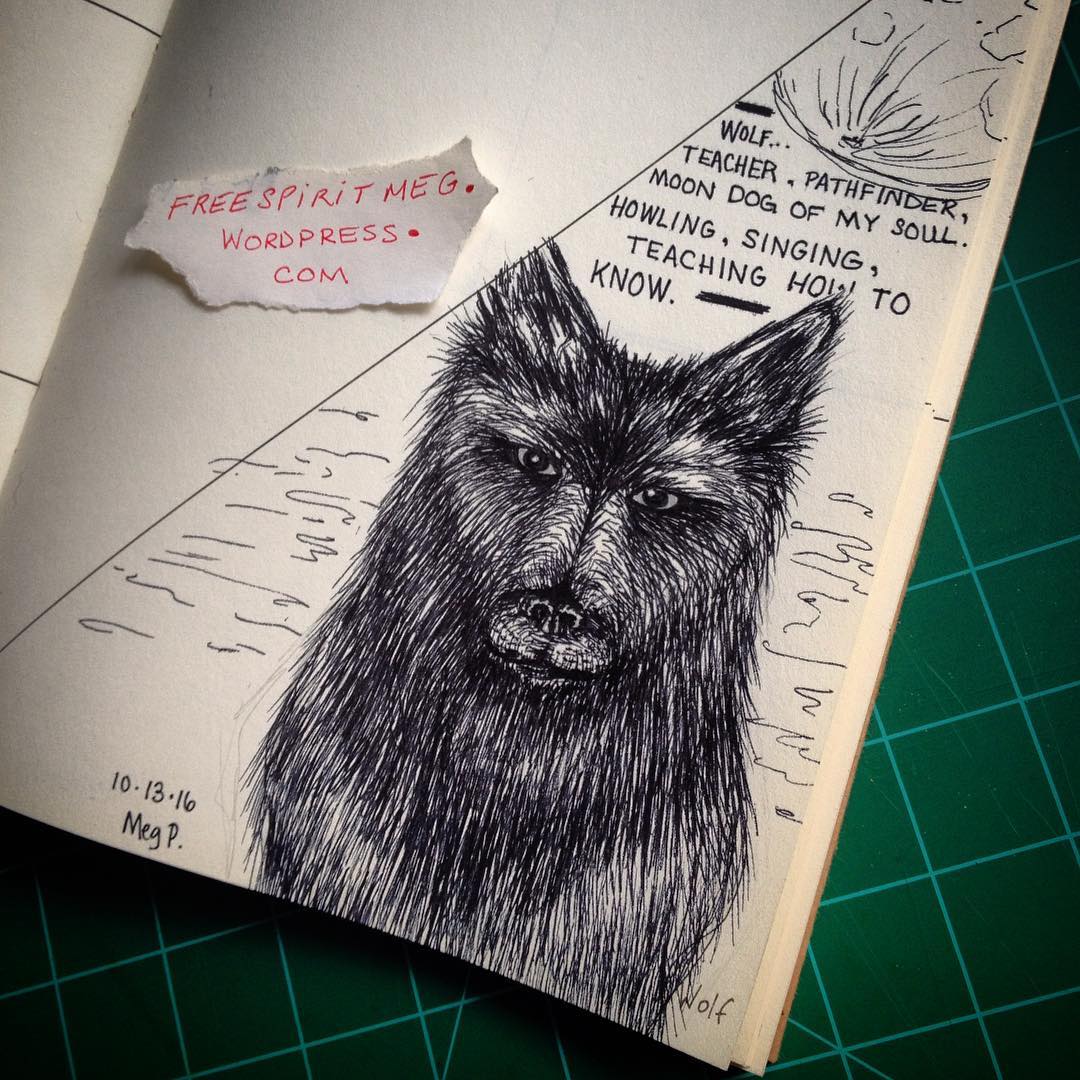 FREESPIRITMEG.
WORDPRESS.
COM
WOLF...
TEACHER, PATHFINDER,
MOON DOG OF MY SOUL.
HOWLING, SINGING,
TEACHING HOW TO
KNOW.
10.13.16
Meg P.
Wolf